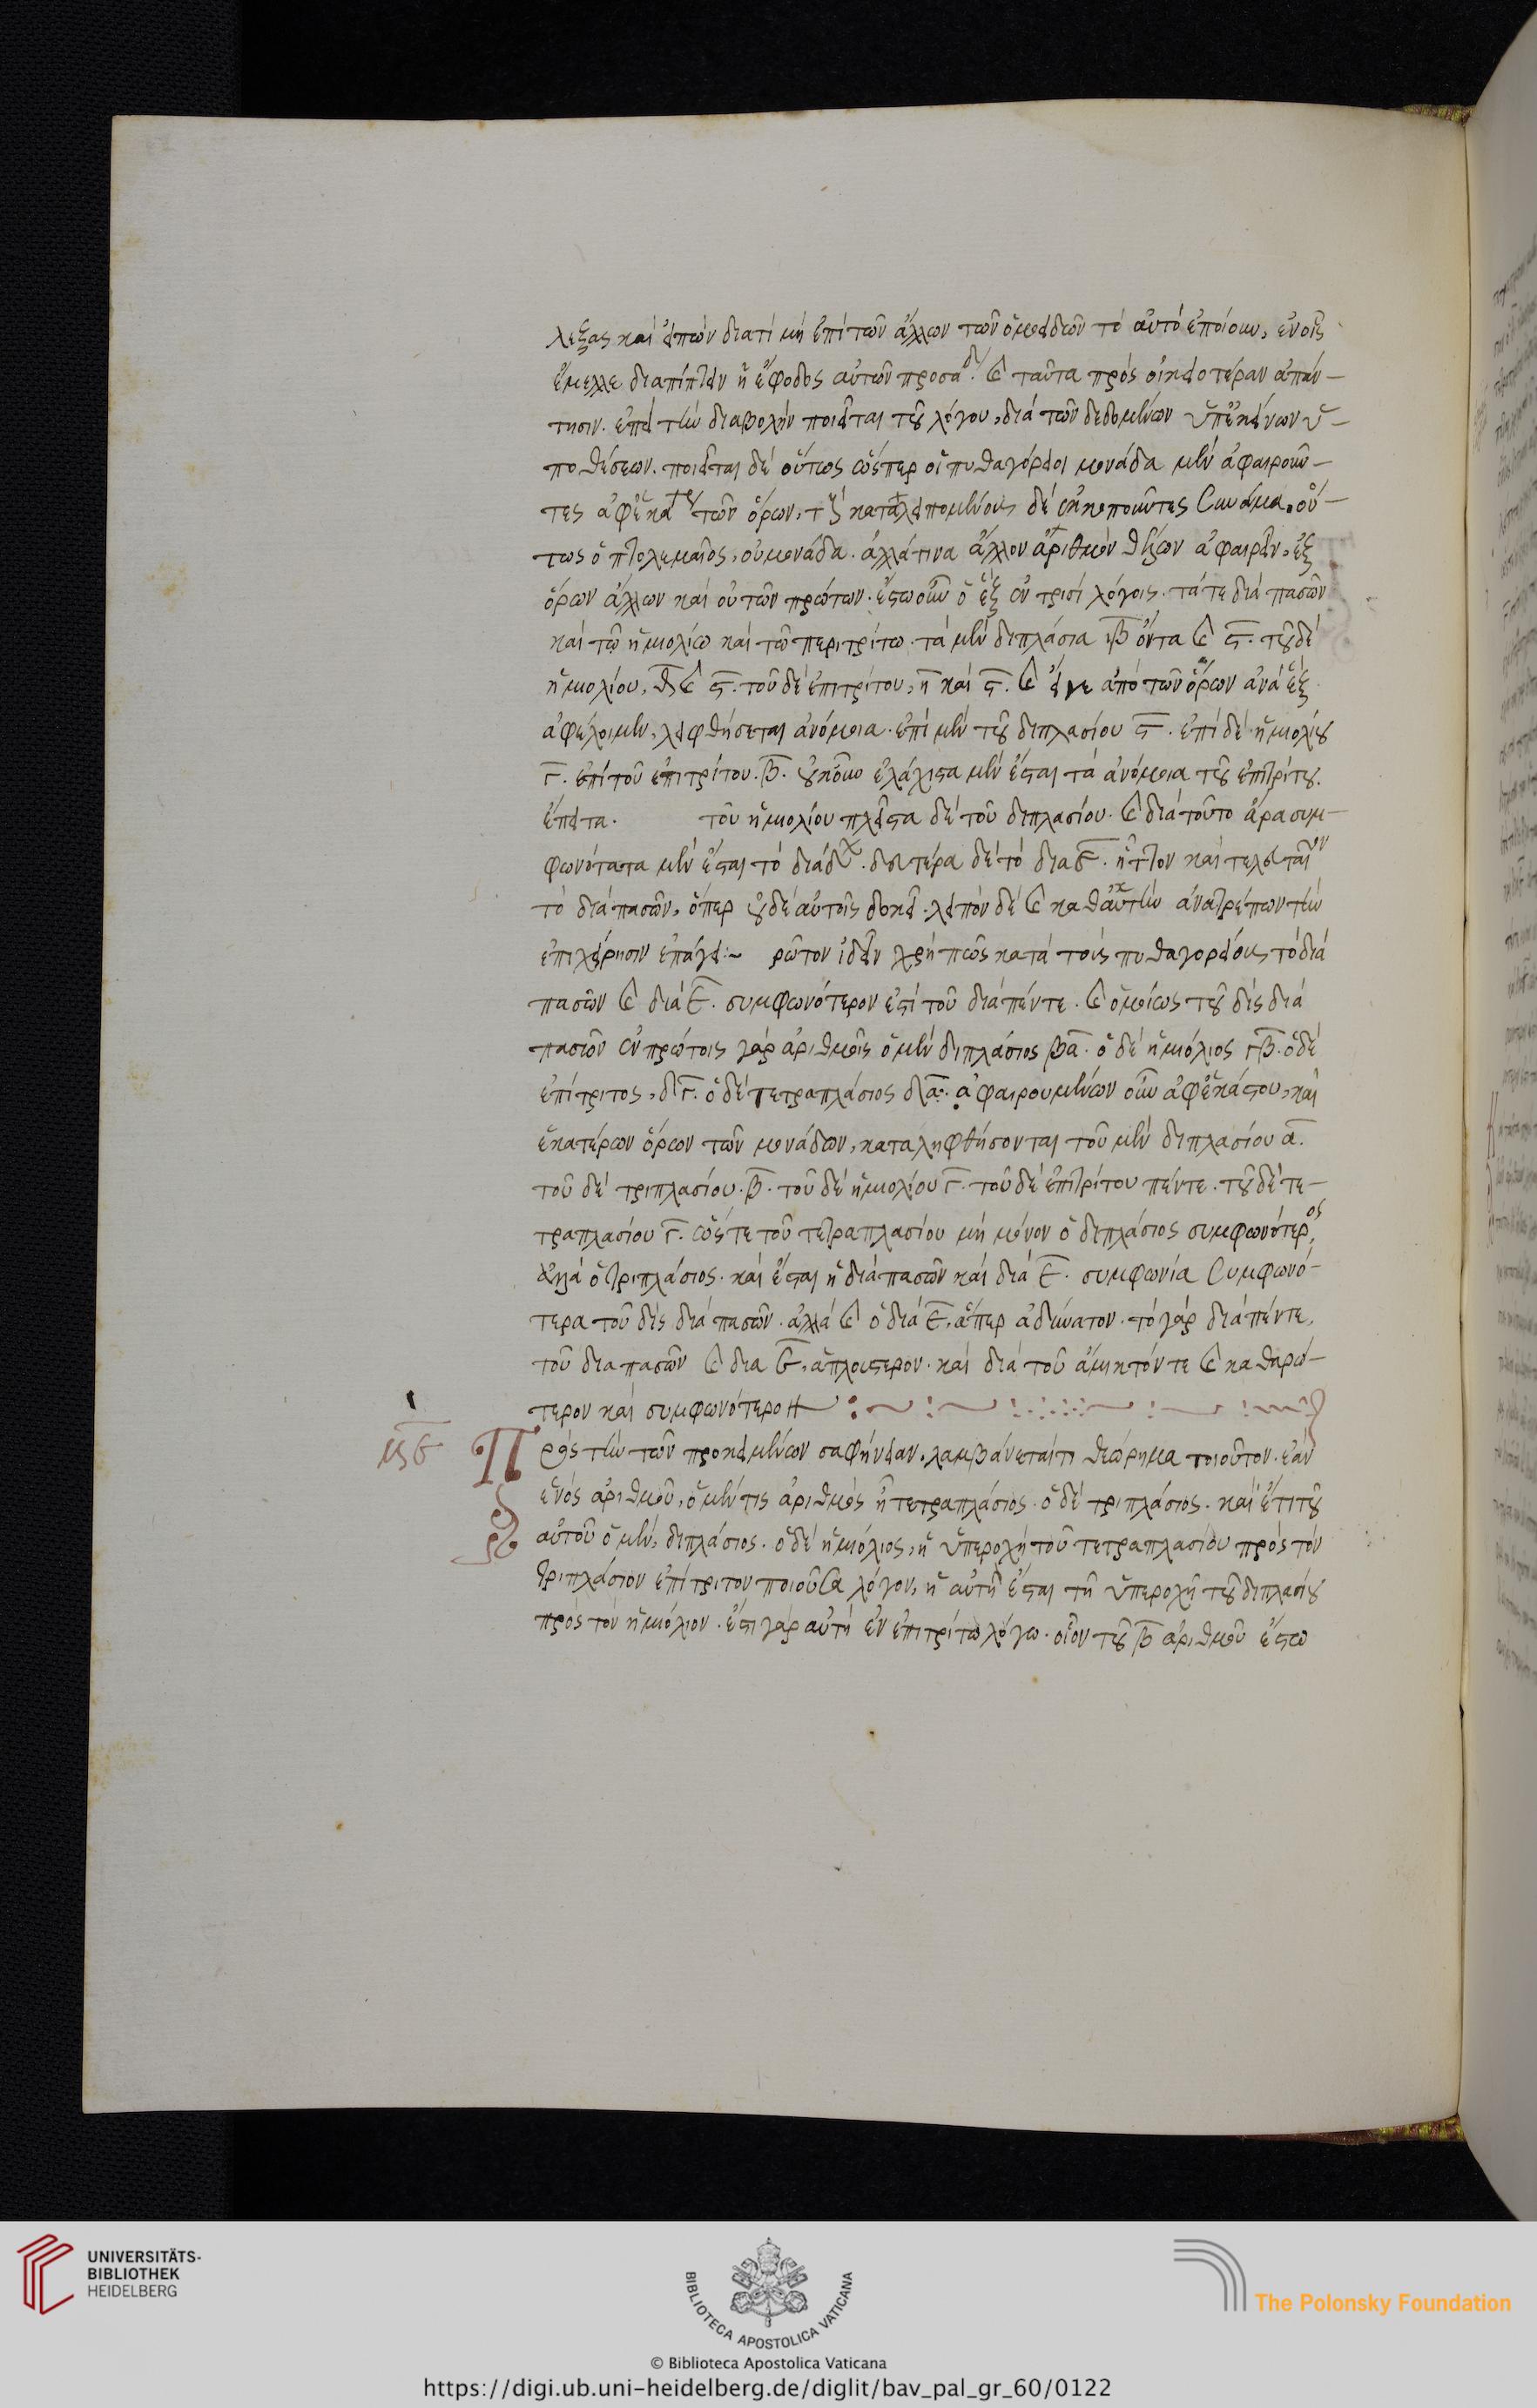 λέξας καὶ εἰπὼν διατί μὴ ἐπὶ τῶν ἄλλων τῶν ὁμοειδῶν τὸ αὐτὸ ἐποίουν, ἐν οἷς
ἔμελλε διαπίπτειν ἡ ἔφοδος αὐτῶν καὶ ταῦτα πρὸς οἰκειοτέραν ἀπάν-
τησιν. ἐπεὶ τὴν διαβολὴν ποιεῖται τοῦ λόγου, διὰ τῶν δεδομένων ὑπ' ἐκείνων ὑ-
ποθέσεων. ποιεῖται δὲ οὕτως ὥσπερ οἱ πυθαγόρειοι μονάδα μὲν ἀφαιροῦν-
τες ἀφ' ἑκατέρου τῶν ὅρων, δὲ σκοποῦντες ὁύ-
τως ὁ πτολεμαῖος, οὐ μονάδα. ἀλλά τινα ἄλλον ἀριθμὸν ἀφαιρεῖν, ἐξ
ὅρων ἄλλων καὶ οὐ τῶν πρώτων. ἔστω οὖν ὁ ἓξ ἐν τρισὶ λόγοις. τά τε διὰ πασῶν
καὶ τῷ ἡμιολίῳ καὶ τῷ περιτρίτω. τὰ μὲν διπλάσια ιβ ὄντα καὶ ς. τοῦ δὲ
ἡμιολίου, θ καὶ ς. τοῦ δὲ ἐπιτρίτου, η καὶ ς. καὶ εἴγε ἀπὸ τῶν ὅρων ἀνὰ ἓξ
ἀφέλοιμεν, λειφθήσεται ἀνόμοια. ἐπὶ μὲν τοῦ διπλασίου ς. ἐπὶ δὲ ἡμιολίου
γ. ἐπὶ τοῦ ἐπιτρίτου. β. οὐκοῦν ἐλάχιστα μὲν ἔσται τὰ ἀνόμοια τοῦ ἐπιτρίτου.
ἔπειτα. τοῦ ἡμιολίου πλεῖστα δὲ τοῦ διπλασίου. καὶ διὰ τοῦτο ἄρα συμ-
φωνότατα μὲν ἔσται τὸ διὰ δ. δευτέρα δὲ τὸ δια ε. ἧττον καὶ τελευταῖον
τὸ διὰ πασῶν, ὅπερ οὐδὲ αὐτοῖς δοκεῖ. λειπὸν δὲ καὶ καθ' αὑτὴν ἀνατρέπων τὴν
ἐπιχείρησιν ἐπάγει:~ ρῶτον ἰδεῖν χρὴ πῶς κατὰ τοὺς πυθαγορείους, τὸ διὰ
πασῶν καὶ διὰ ε. συμφωνότερον ἐστὶ τοῦ διὰ πέντε. καὶ ὁμοίως τοῦ δὶς διὰ
πασῶν ἐν πρώτοις γὰρ ἀριθμοῖς ὁ μὲν διπλάσιος βα. ὁ δὲ ἡμιόλιος γβ. ὁ δὲ
ἐπίτριτος, δγ. ὁ δὲ τετραπλάσιος δα. ἀφαιρουμένων οὖν ἀφ' ἑκάστου, καὶ
ἑκατέρων ὅρων τῶν μονάδων, καταληφθήσονται τοῦ μὲν διπλασίου α.
τοῦ δὲ τριπλασίου. β. τοῦ δὲ ἡμιολίου γ. τοῦ δὲ ἐπιτρίτου πέντε. τοῦ δὲ τε-
τραπλασίου γ. ὥστε τοῦ τετραπλασίου μὴ μόνον ὁ διπλάσιος συμφωνότερος,
ἀλλὰ ὁ τριπλάσιος. καὶ ἔσται ἡ διὰ πασῶν καὶ διὰ ε. συμφωνία συμφωνό-
τερα τοῦ δὶς διὰ πασῶν. ἀλλὰ καὶ ὁ διὰ ε, ἅπερ ἀδύνατον. τὸ γὰρ διὰ πέντε,
τοῦ δια πασῶν καὶ δια ε, ἁπλούστερον. καὶ διὰ τοῦ ἄμικτόν τε καὶ καθαρώ-
τερον καὶ συμφωνότερον
Πρὸς τὴν τῶν προκειμένων σαφήνειαν. λαμβάνεταί τι θεώρημα τοιοῦτον. ἐὰν
ἑνὸς ἀριθμοῦ, ὁ μέν τις ἀριθμὸς ἢ τετραπλάσιος. ὁ δὲ τριπλάσιος. καὶ ἔτι τοῦ
αὐτοῦ ὁ μὲν, διπλάσιος. ὁ δὲ ἡμιόλιος, ἡ ὑπεροχὴ τοῦ τετραπλασίου πρὸς τὸν
τριπλάσιον ἐπίτριτον ποιοῦσα λόγον, ἡ αὐτὴ ἔσται τῇ ὑπεροχῇ τοῦ διπλασίου
πρὸς τὸν ἡμιόλιον. ἔστι γὰρ αὐτὴ ἐν ἐπιτρίτω λόγω. οἷον τοῦ β ἀριθμοῦ ἔστω
UNIVERSITÄTS-
BIBLIOTHEK
HEIDELBERG
BIBLIOTECA APOSTOLICA VATICANA
The Polonsky Foundation
© Biblioteca Apostolica Vaticana
https://digi.ub.uni-heidelberg.de/diglit/bav_pal_gr_60/0122